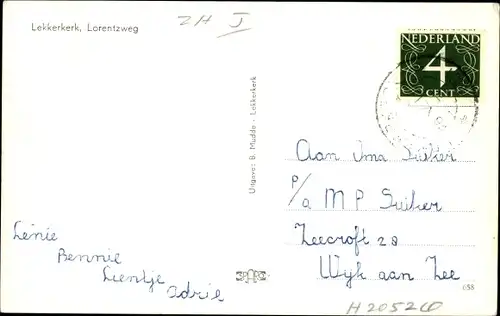 Lekkerkerk, Lorentzweg
ZH J
NEDERLAND
4
CENT
Uitgave: B. Mudde - Lekkerkerk
Aan Ima Suiker
p/a M P Suiker
Zeecroft 28
Wyk aan Zee
Lenie
Bennie
Lientje
Adrie
658